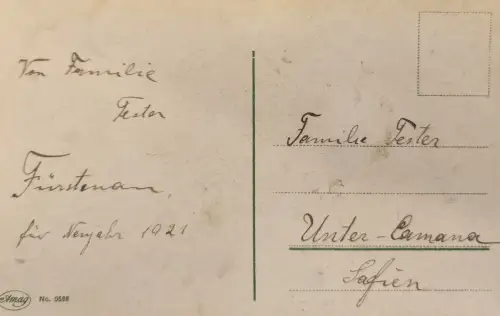 Von Familie
Tester
Fürstenau,
für Neujahr 1921
Familie Tester
Unter-Camana
Safien
Amag No. 0588